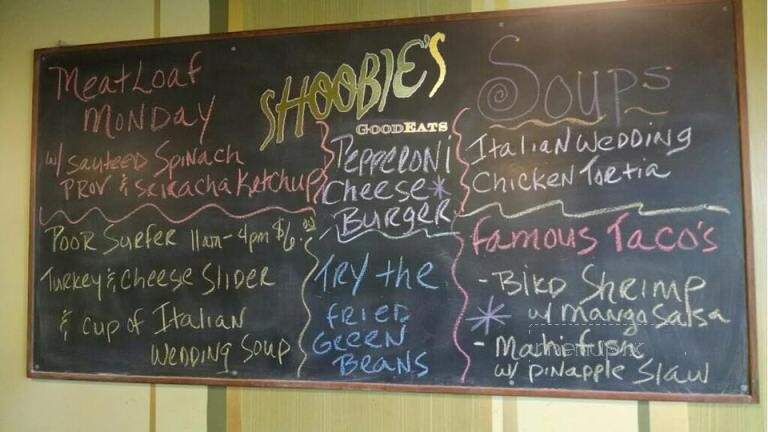 SHOOBIE'S
GOODEATS
MeatLoaf
MONDAY
w/ Sauteed Spinach
PROV & Sriracha Ketchup
Poor Surfer 11am-4pm $6.00
Turkey & Cheese Slider
& Cup of Italian
Wedding Soup
Pepperoni
Cheese
Burger
Try the
FRIED
GREEN
BEANS
Soups
Italian Wedding
Chicken Tortia
Famous Taco's
- Bikd Shrimp
w/ Mango Salsa
- Mahi fush
w/ pinapple Slaw